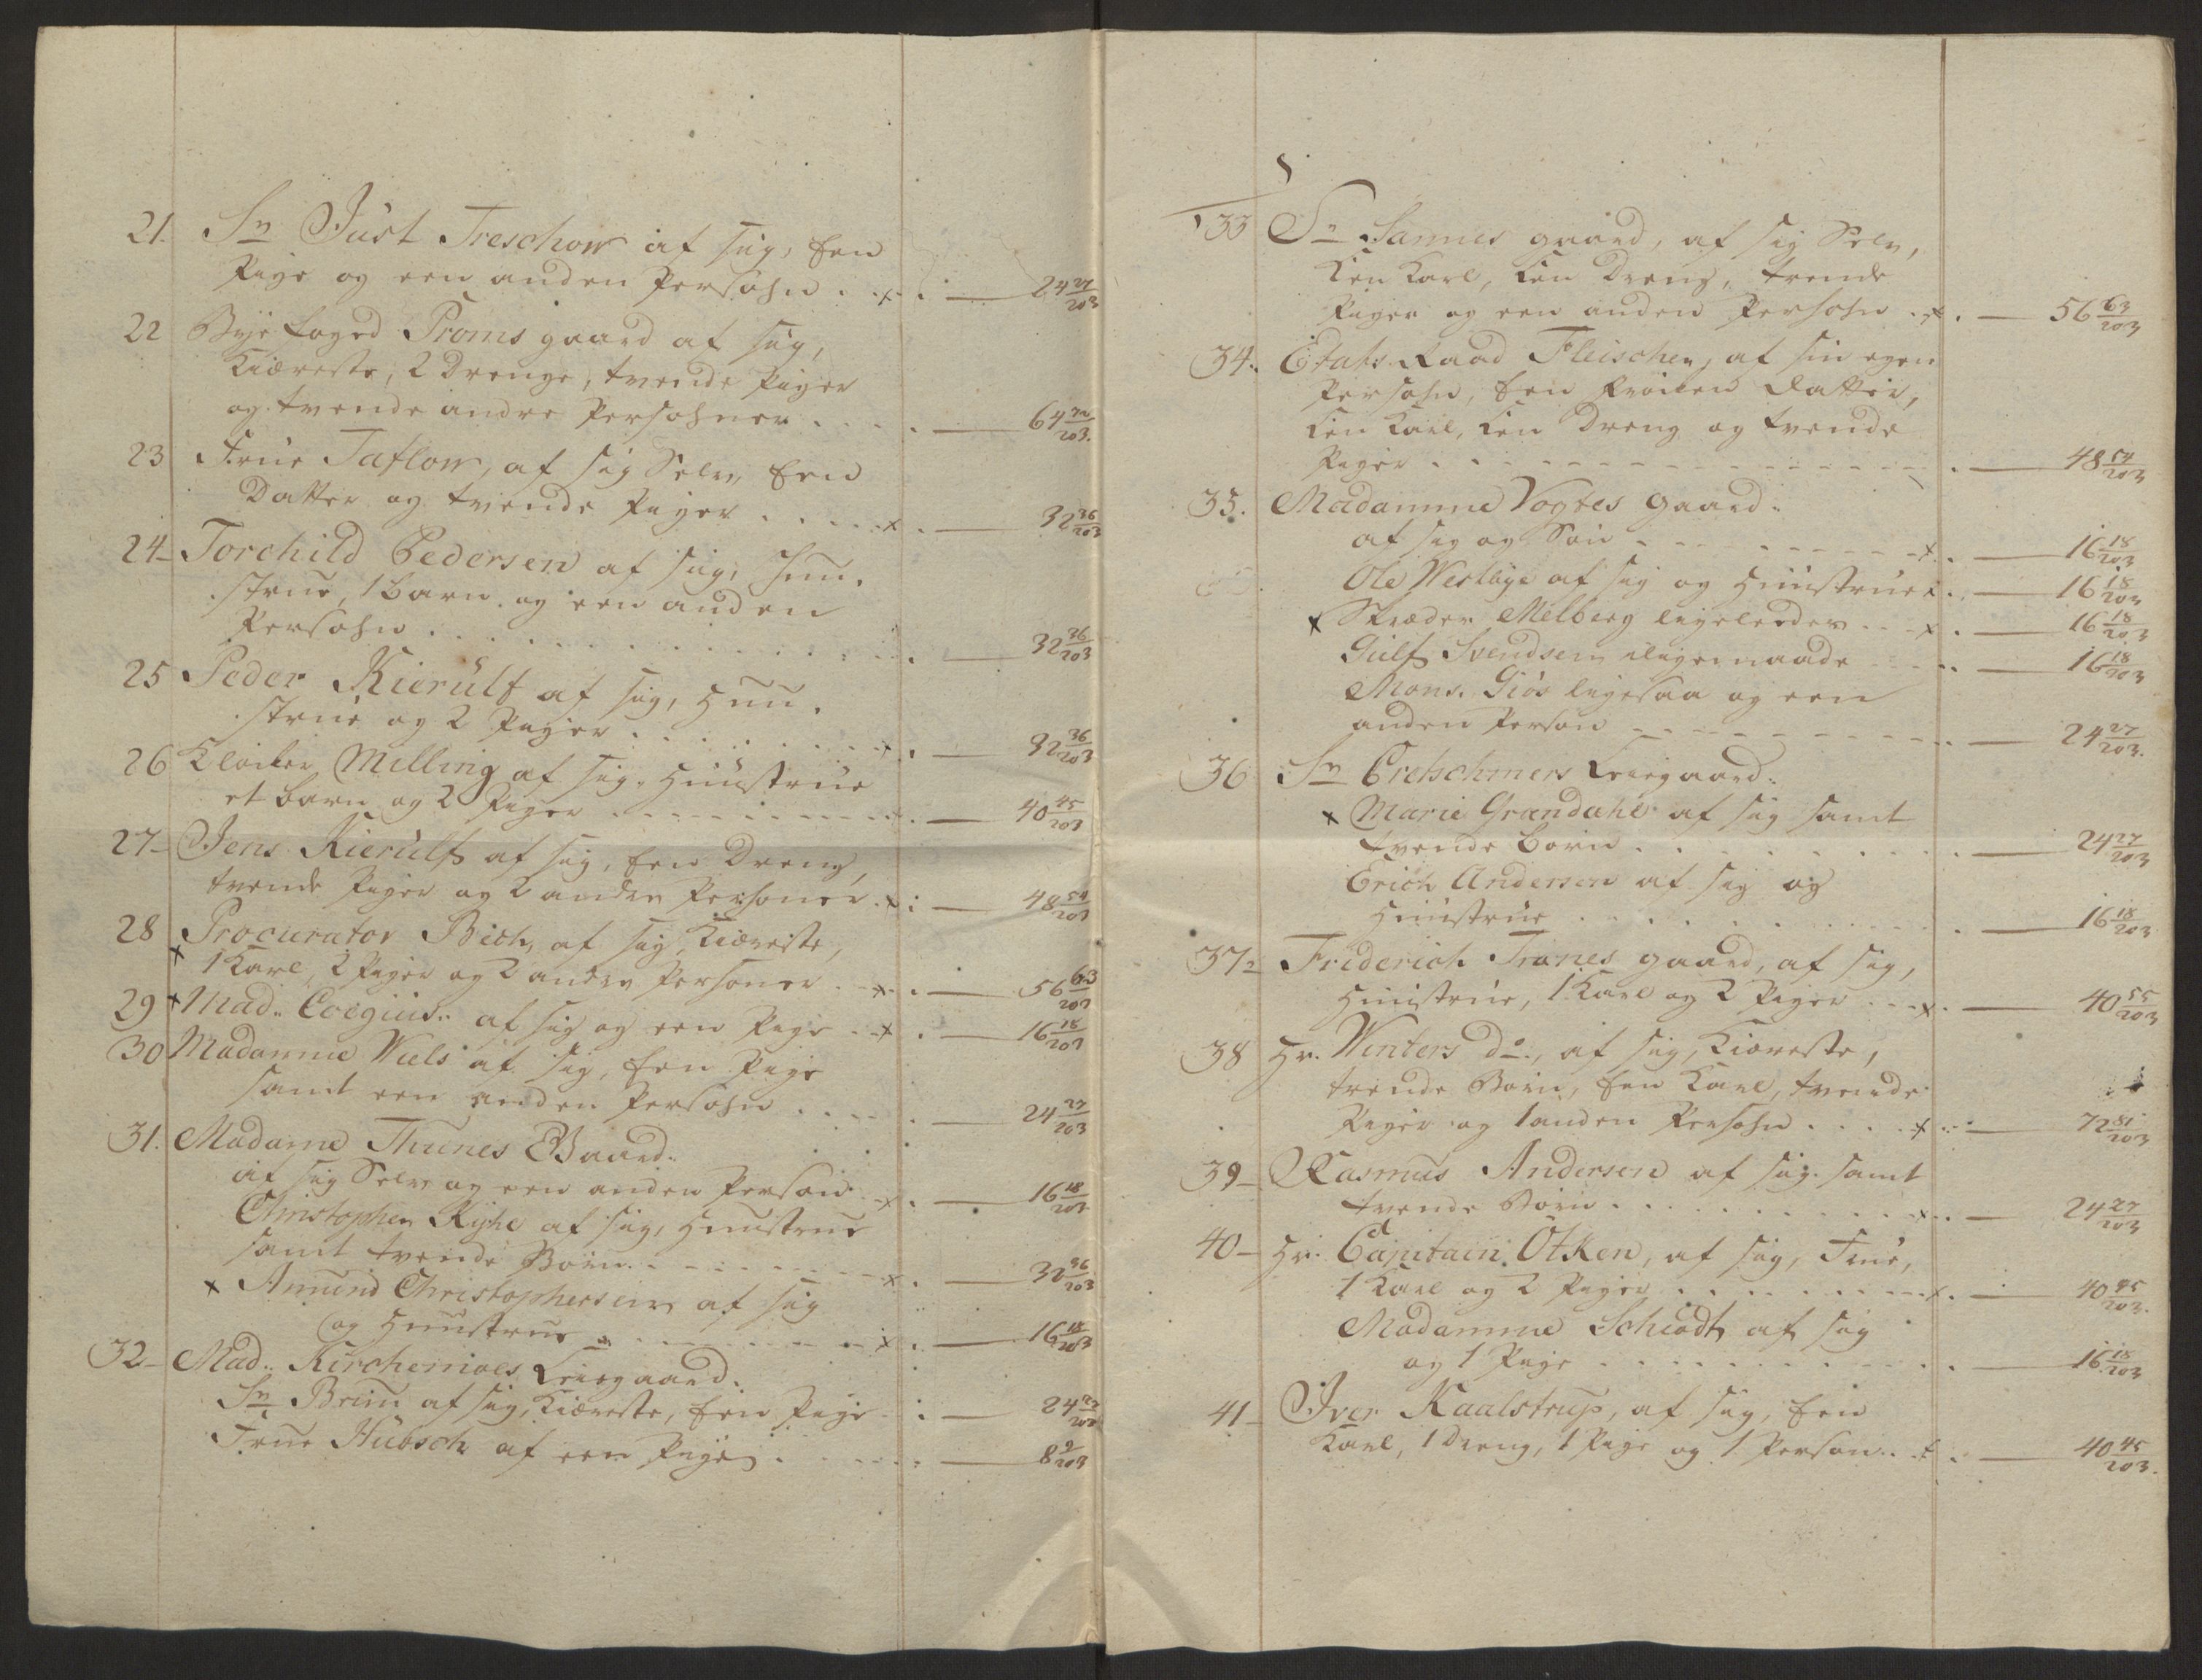 21. Sr. Just Treschow af sig, Een
Pige og een anden Persohn . x . — 24 27/203
22 Bye foged Proms gaard af sig,
Kiæreste, 2 Drenge, tvende Piger
og tvende andre Persohner . . . . — 64 72/203.
23 Frue Taflow, af sig Selv, Een
Datter og tvende Piger . . . . x . — 32 36/203
24 – Torchild Pedersen af sig, Huu.
strue, 1 barn og een anden
Persohn . . . . . . . . . . — 32 36/203
25 Peder Kierulf af sig, Huu.
strue og 2 Piger . . . . . . x . — 32 36/203
26 Klocker Milling af sig, Huustrue
et barn og 2 Piger . . . . . x . — 40 45/203
27 – Jens Kierulf af sig, Een Dreng,
tvende Piger og 2 andre Personer . x : — 48 54/203
28 Procurator Bech, af sig, Kiæreste,
x 1 Karl, 2 Piger og 2 andre Personer . x . — 56 63/203
29 x Mad: Coegius: af sig og een Pige . . x . — 16 18/203
30 Madamme Wiels af sig, Een Pige
samt een anden Persohn . . . . — 24 27/203
31. Madame Thunes Gaard:
af sig Selv og een anden Person x . — 16 18/203
Christopher Ryhe af sig, Huustrue
samt tvende Børn . . . . . . x . — 32 36/203
x Amund Christophersen af sig
og Huustrue . . . . . . x . — 16 18/203
32 – Mad: Kirchemoes Leiegaard:
Sr. Brun af sig, Kiæreste, Een Pige . : — 24 27/203
Frue Hübsch af een Pige . . . . . — 8 9/203
33 Sr. Sannes gaard, af sig Selv,
Een Karl, Een Dreng, trende
Piger og een anden Persohn . x . — 56 63/203
34. Etats Raad Fleischer, af sin egen
Persohn, Een Frøiken Datter,
Een Karl, Een Dreng og tvende
Piger . . . . . . . . . . — 48 54/203
35. Madamme Vogtes gaard:
af sig og Søn . . . . . . x . — 16 18/203
Ole Westbye af sig og Huustrue x . — 16 18/203
x Skræder Melberg ligeleedes . . x . — 16 18/203
Gulf Svendsen iligemaade . . . . — 16 18/203
Mons. Giös ligesaa og een
anden Person . . . . . . . . — 24 27/203.
36 Sr. Cretschmers Leiegaard:
x Marie Grandahl af sig samt
tvende Børn . . . . . . . . — 24 27/203
Erich Andersen af sig og
Huustrue . . . . . . . . — 16 18/203
37 – Friderich Tranes gaard, af sig,
Huustrue, 1 Karl og 2 Piger . . x . — 40 55/203
38 Hr. Winters do., af sig, Kiæreste,
trende Børn, Een Karl, tvende
Piger og 1 anden Persohn . . . . x . — 72 81/203
39 – Rasmus Andersen af sig samt
tvende Børn . . . . . . . . x . — 24 27/203
40 – Hr. Capitain Otken, af sig, Frue,
1 Karl og 2 Piger . . . . . . x . — 40 45/203.
Madamme Schiødt af sig
og 1 Pige . . . . . . . . — 16 18/203
41 – Iver Kaalstrup, af sig, Een
Karl, 1 Dreng, 1 Pige og 1 Person . . x . — 40 45/203.